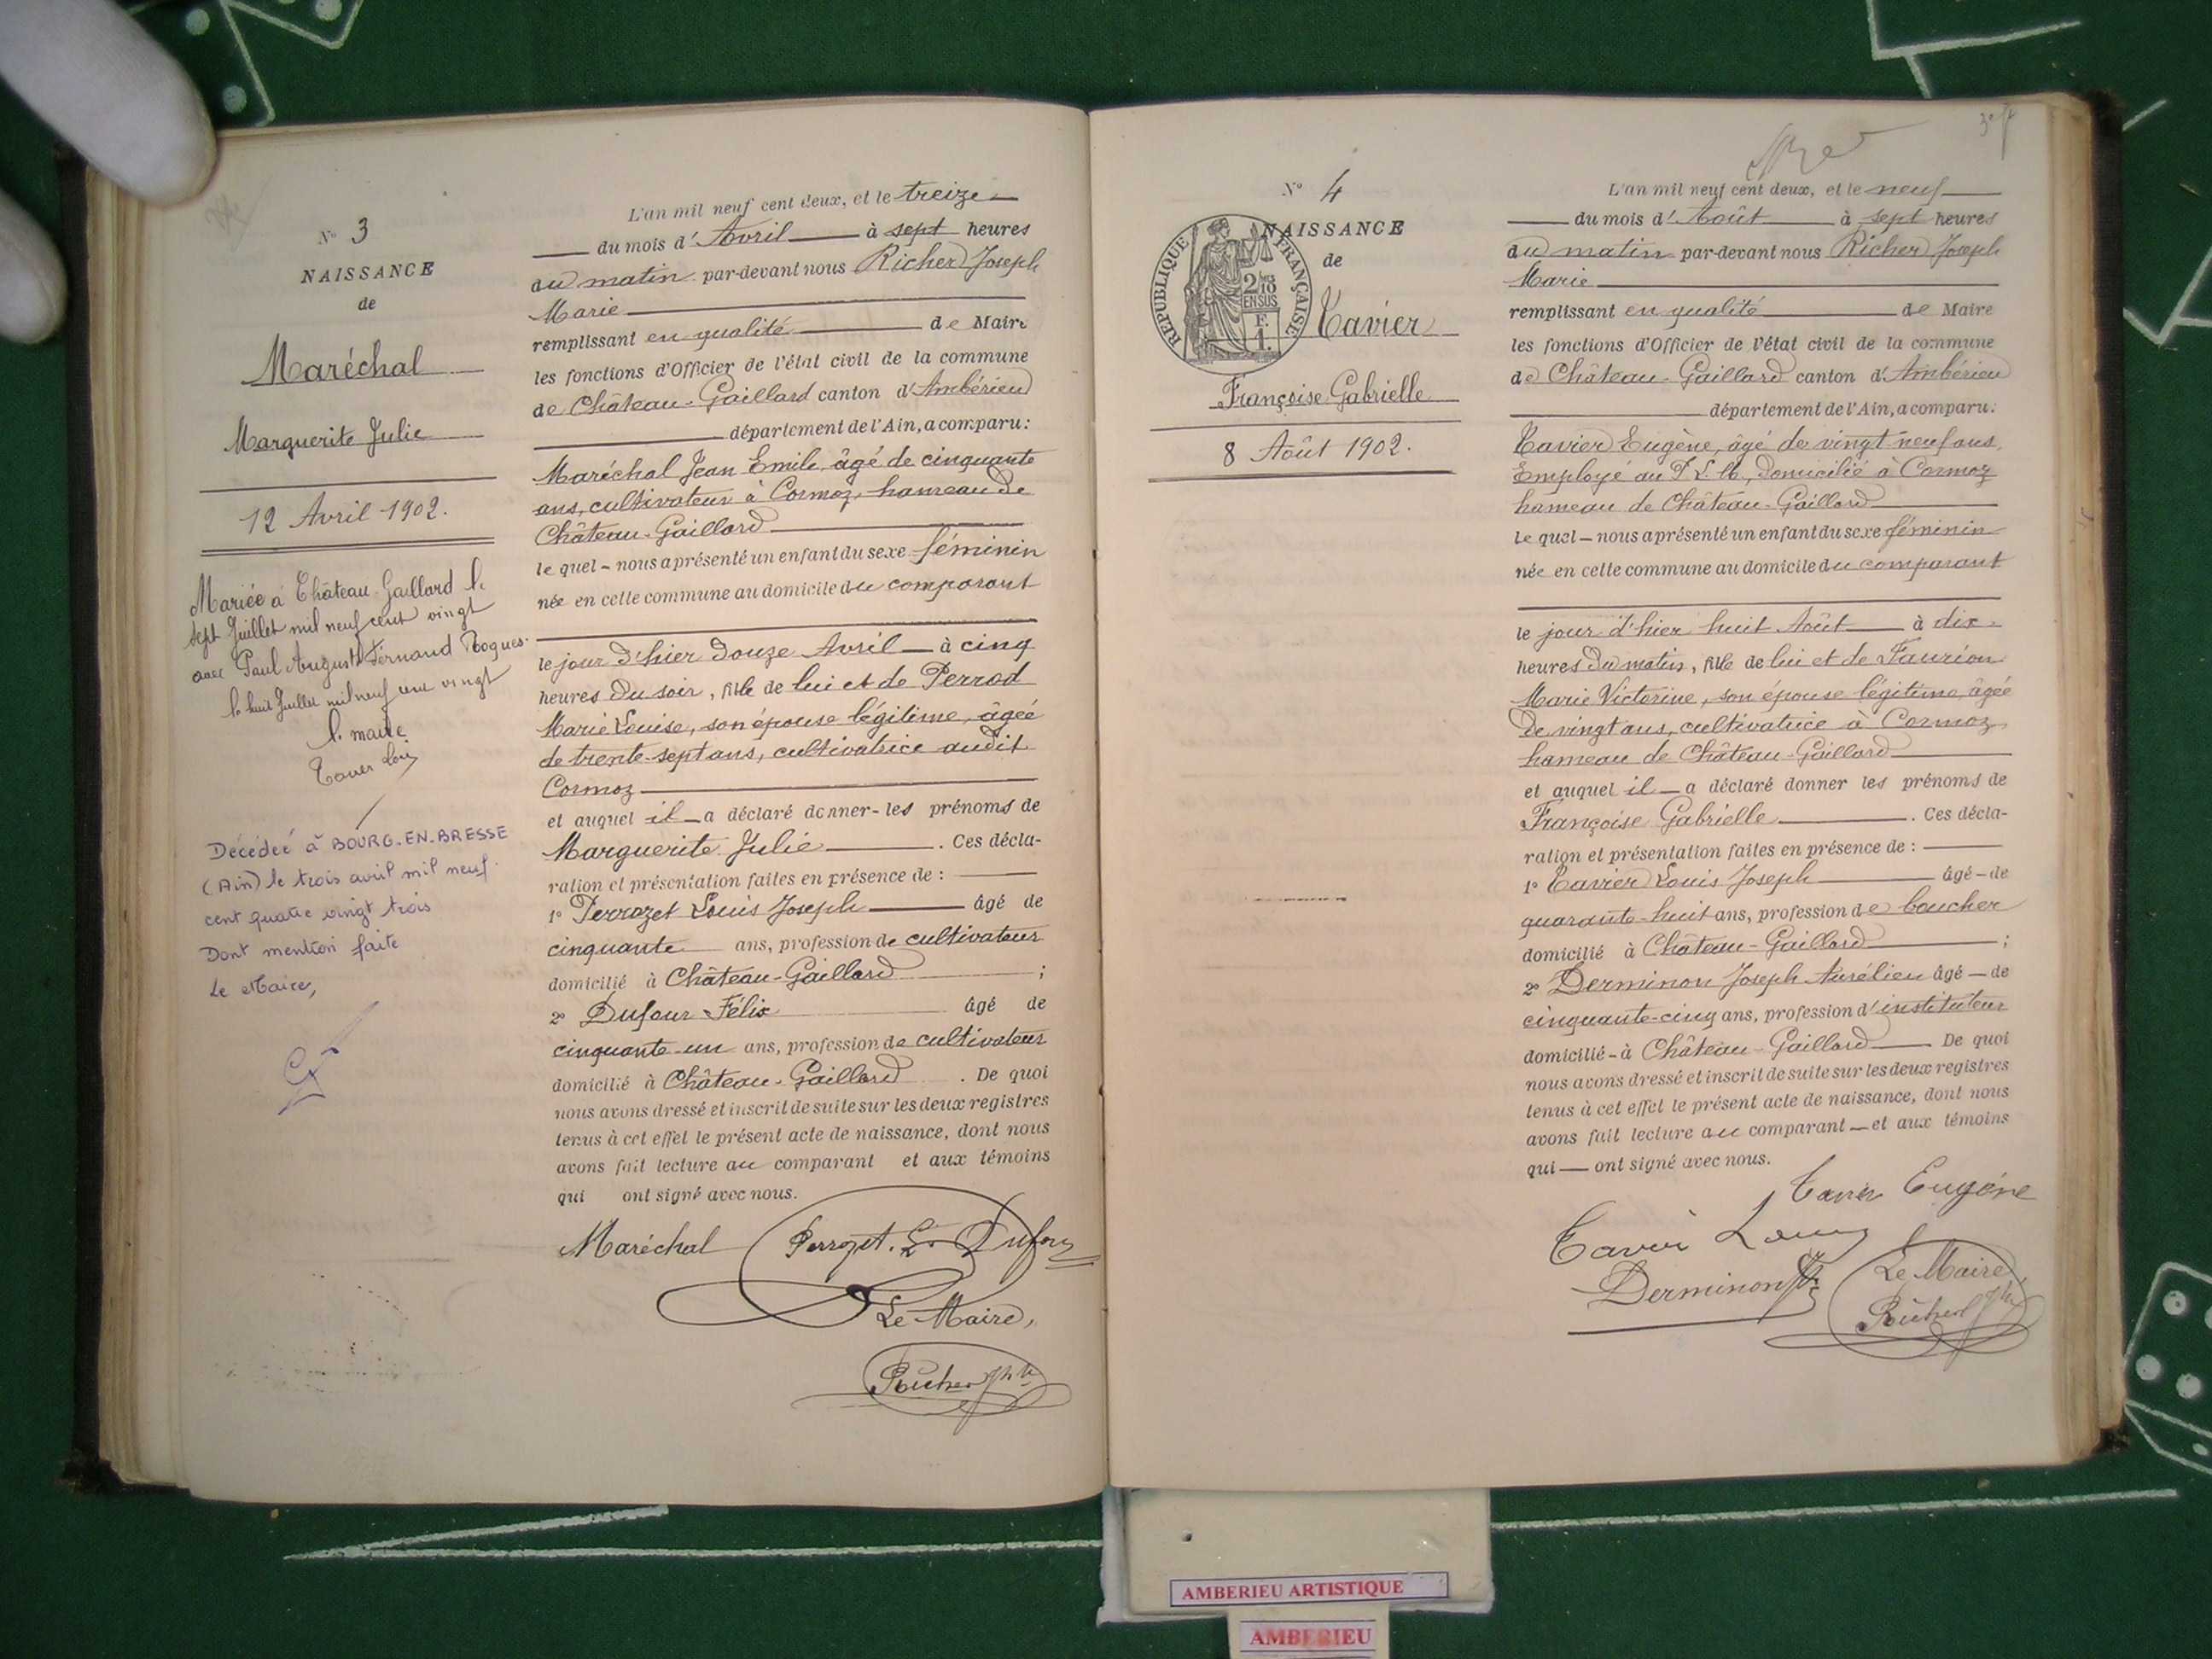 N° 3
NAISSANCE
de
Maréchal
Marguerite Julie
12 Avril 1902.
Mariée à Château-Gaillard le
sept Juillet mil neuf cent vingt
avec Paul Auguste Fernand Roques.
le huit Juillet mil neuf cent vingt
le maire
Décédée à BOURG-EN-BRESSE
(Ain) le trois avril mil neuf
cent quatre vingt trois
Dont mention faite
Le Maire,
L'an mil neuf cent deux, et le treize
du mois d'Avril à sept heures
du matin par-devant nous Richer Joseph
Marie
remplissant en qualité de Maire
les fonctions d'Officier de l'état civil de la commune
de Château-Gaillard canton d'Ambérieu
département de l'Ain, a comparu:
Maréchal Jean Emile, âgé de cinquante
ans, cultivateur à Cormoz, hameau de
Château-Gaillard
le quel - nous a présenté un enfant du sexe féminin
née en cette commune au domicile du comparant
le jour d'hier douze Avril à cinq
heures du soir, fille de lui et de Perrod
Marie Louise, son épouse légitime, âgée
de trente-sept ans, cultivatrice audit
Cormoz
et auquel il a déclaré donner-les prénoms de
Marguerite Julie. Ces décla-
ration et présentation faites en présence de :
1° Perrozet Louis Joseph âgé de
cinquante ans, profession de cultivateur
domicilié à Château-Gaillard ;
2° Dufour Félix âgé de
cinquante-un ans, profession de cultivateur
domicilié à Château-Gaillard. De quoi
nous avons dressé et inscrit de suite sur les deux registres
tenus à cet effet le présent acte de naissance, dont nous
avons fait lecture au comparant et aux témoins
qui ont signé avec nous.
Maréchal Perrozet. L. Dufour
Le Maire,
Richer Jph
N° 4
NAISSANCE
de
REPUBLIQUE FRANÇAISE
2/10
EN SUS
F.
1.
Tavier
Françoise Gabrielle
8 Août 1902.
L'an mil neuf cent deux, et le neuf
du mois d'Août à sept heures
du matin par-devant nous Richer Joseph
Marie
remplissant en qualité de Maire
les fonctions d'Officier de l'état civil de la commune
de Château-Gaillard canton d'Ambérieu
département de l'Ain, a comparu:
Tavier Eugène, âgé de vingt-neuf ans,
Employé au P.L.M., domicilié à Cormoz
hameau de Château-Gaillard
le quel - nous a présenté un enfant du sexe féminin
née en cette commune au domicile du comparant
le jour d'hier huit Août à dix
heures du matin, fille de lui et de Faurion
Marie Victorine, son épouse légitime, âgée
de vingt ans, cultivatrice à Cormoz
hameau de Château-Gaillard
et auquel il a déclaré donner les prénoms de
Françoise Gabrielle. Ces décla-
ration et présentation faites en présence de :
1° Tavier Louis Joseph âgé-de
quarante-huit ans, profession de boucher
domicilié à Château-Gaillard ;
2° Derminon Joseph Aurélien âgé - de
cinquante-cinq ans, profession d'instituteur
domicilié-à Château-Gaillard De quoi
nous avons dressé et inscrit de suite sur les deux registres
tenus à cet effet le présent acte de naissance, dont nous
avons fait lecture au comparant - et aux témoins
qui - ont signé avec nous.
Tavier Eugène
Tavier Louis
Derminon
Le Maire
Richer Jph
AMBERIEU ARTISTIQUE
AMBERIEU